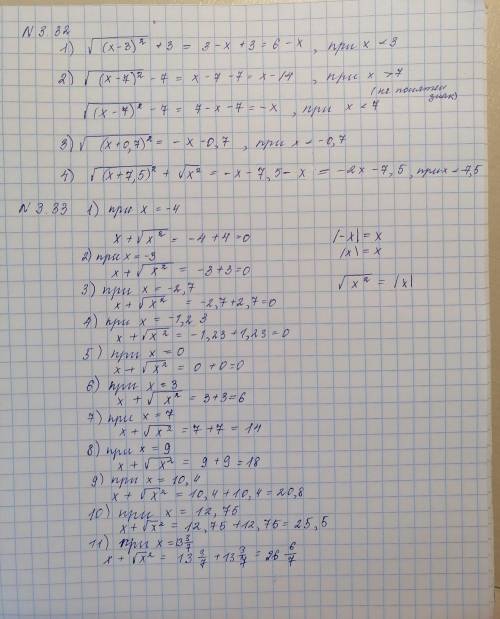 N 3.32
1) √(x-3)² + 3 = 3 - x + 3 = 6 - x , при x < 3
2) √(x-7)² - 7 = x - 7 - 7 = x - 14 , при x > 7
(не понятен знак)
√(x-7)² - 7 = 7 - x - 7 = -x , при x < 7
3) √(x+0,7)² = -x - 0,7 , при x < -0,7
4) √(x+7,5)² + √x² = -x - 7,5 - x = -2x - 7,5 , при x < -7,5
N 3.33 1) при x = -4
x + √x² = -4 + 4 = 0
|-x| = x
|x| = x
√x² = |x|
2) при x = -3
x + √x² = -3 + 3 = 0
3) при x = -2,7
x + √x² = -2,7 + 2,7 = 0
4) при x = -1,23
x + √x² = -1,23 + 1,23 = 0
5) при x = 0
x + √x² = 0 + 0 = 0
6) при x = 3
x + √x² = 3 + 3 = 6
7) при x = 7
x + √x² = 7 + 7 = 14
8) при x = 9
x + √x² = 9 + 9 = 18
9) при x = 10,4
x + √x² = 10,4 + 10,4 = 20,8
10) при x = 12,75
x + √x² = 12,75 + 12,75 = 25,5
11) при x = 13 3/7
x + √x² = 13 3/7 + 13 3/7 = 26 6/7